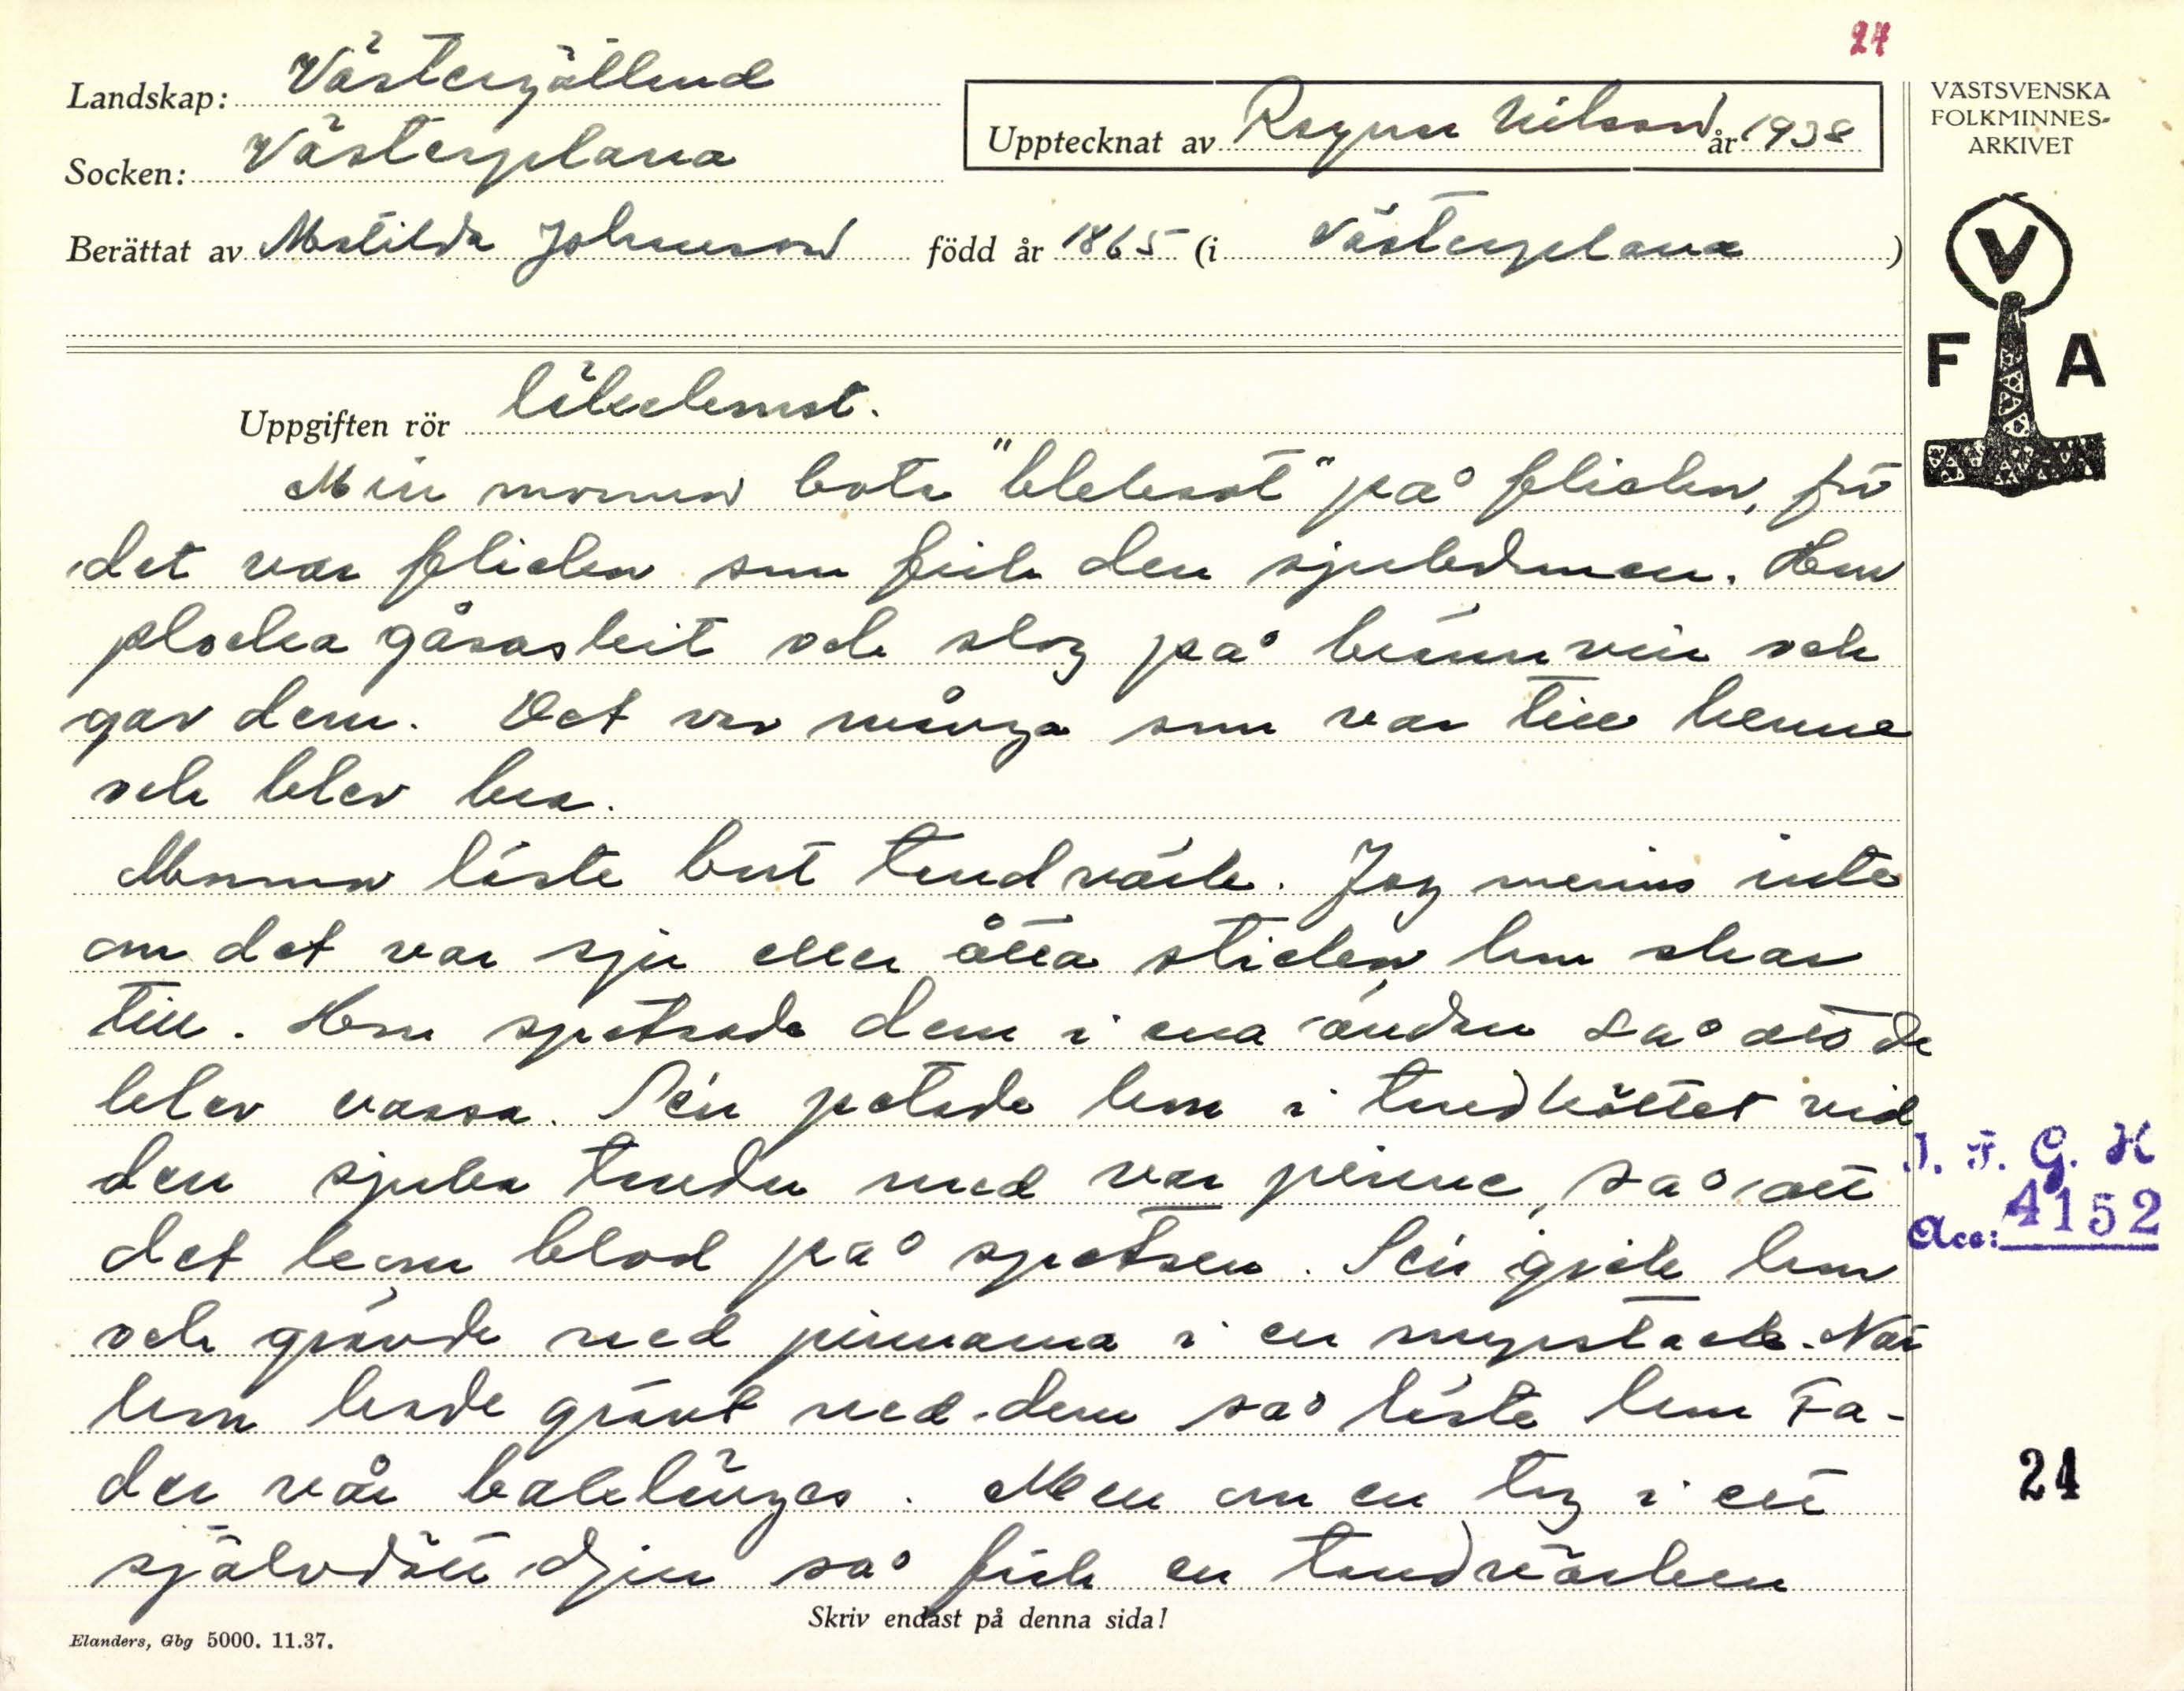 24
Landskap: Västergötland
Socken: Västerplana
Upptecknat av Ragnar Nilsson år 1938
Berättat av Matilda Johansson född år 1865 (i Västerplana)
VÄSTSVENSKA
FOLKMINNES-
ARKIVET
V
F A
Uppgiften rör läkekonst.
Min mormor bota "bleksot" på flickor, för
det var flickor som fick den sjukdomen. Hon
plocka gåsaskit och slog på brännvin och
gav dem. Det var många som var till henne
och blev bra.
Mormor läste bort tandvärk. Jag minns inte
om det var sju eller åtta stickor hon skar
till. Hon spetsade dem i ena ändan så att de
blev vassa. Sen petade hon i tandköttet vid
den sjuka tanden med var pinne, så att
det kom blod på spetsen. Sen gick hon
och grävde ned pinnarna i en myrstack. När
hon hade grävt ned dem så läste hon Fa-
der vår baklänges. Men om en tog i ett
självdött djur så fick en tandvärken
I. F. G. H
Acc: 4152
24
Skriv endast på denna sida!
Elanders, Gbg 5000. 11.37.